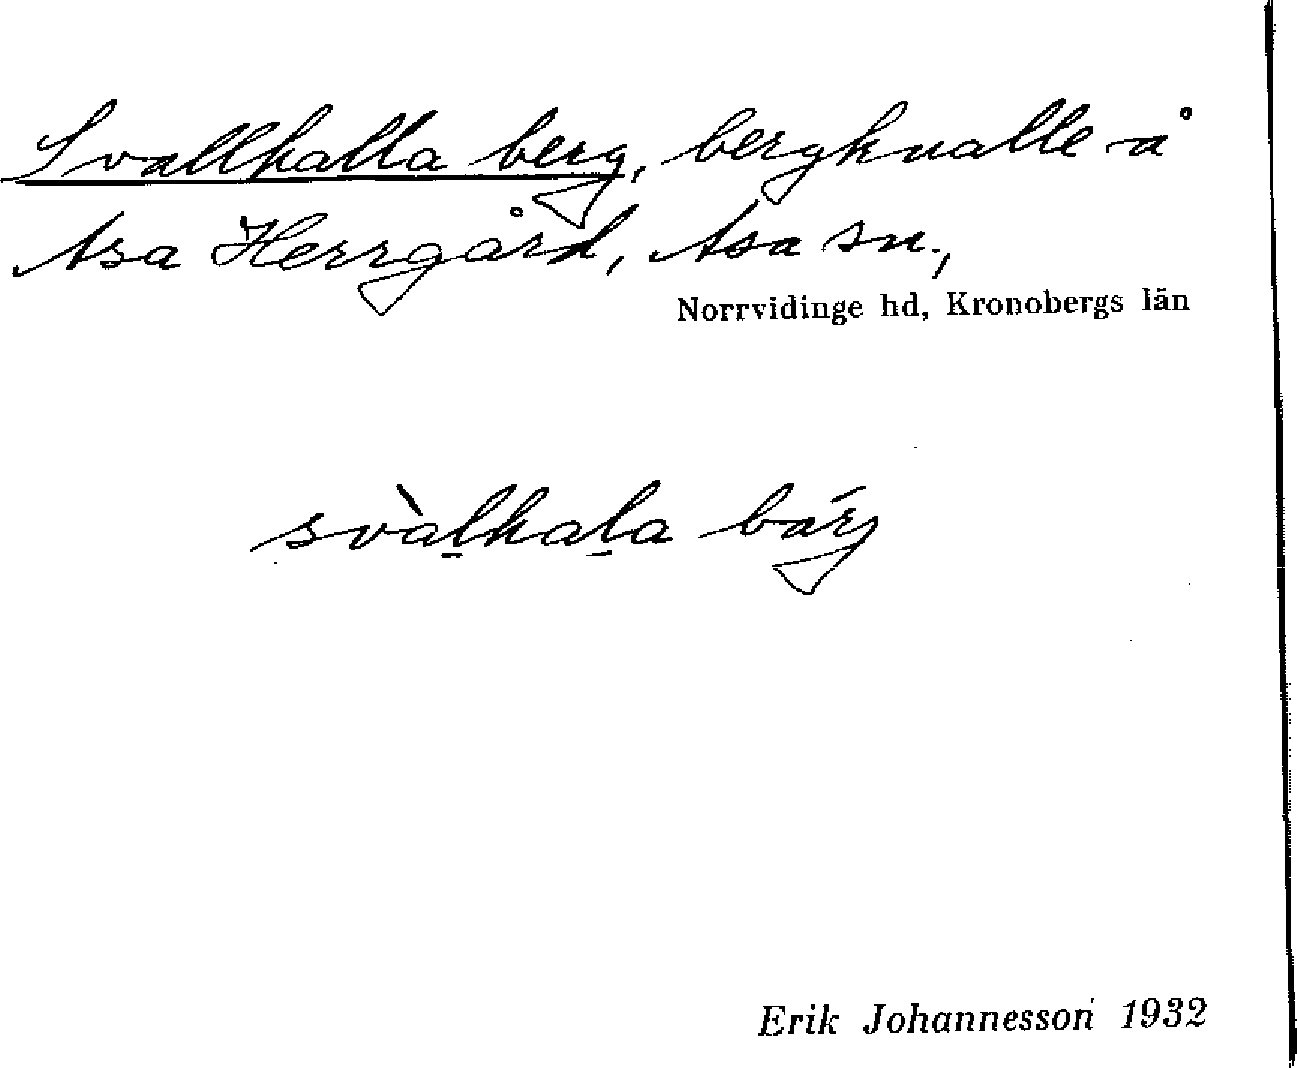 Svallhalla berg, bergknalle å
Asa Herrgård, Asa sn.,
Norrvidinge hd, Kronobergs län
svàl̠hal̠a bárj
Erik Johannesson 1932